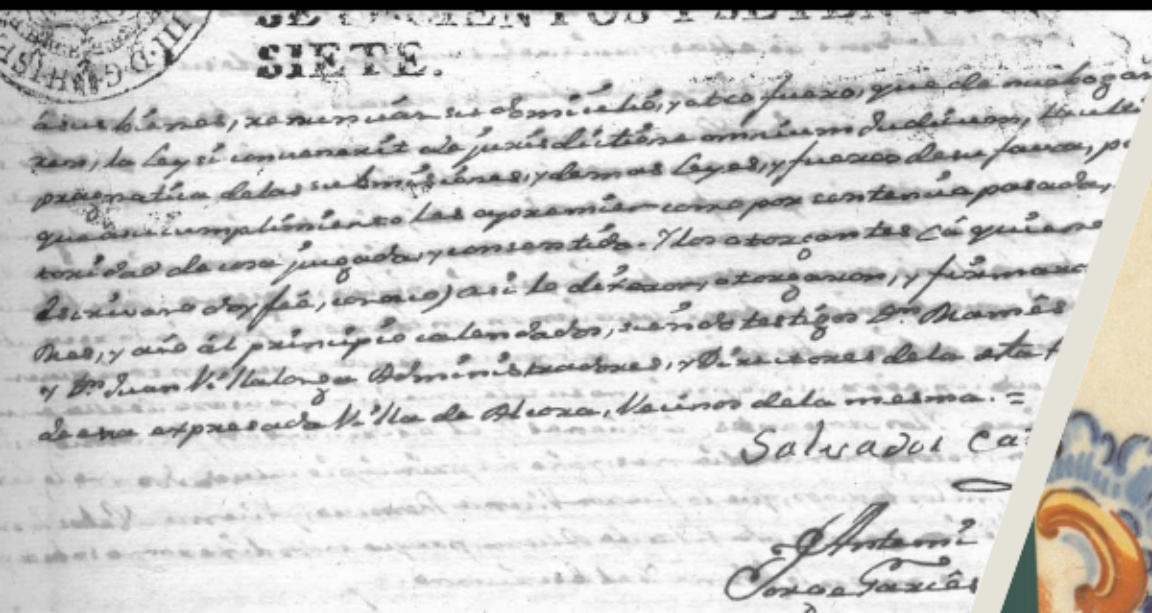 SETECIENTOS Y SETENTA Y
SIETE.
HISP
à sus bienes, renunciàn su domicilio, y otro fuero, que de nuebo ganà
ren, la Ley si convenerit de jurisdictione omnium Judicum, la ulti
pragmatica de las submisiones, y demas Leyes, y fueros de su favor, p
que à su cumplimiento les apremien como por sentencia pasada,
toridad de cosa juzgada, y consentida. Y los otorgantes (à quiene
Escrivano doy fee, conosco) asi lo dixeron, otorgaron, y firmaro
Mes, y año àl principio calendados, siendo testigos Dn. Mamès
y Dn. Juan Villalonga Administradores, y Directores de la
de esta expresada Villa de Alcora, Vecinos de la mesma. =
Salvador Ca
Antemi
Jorge Garcès